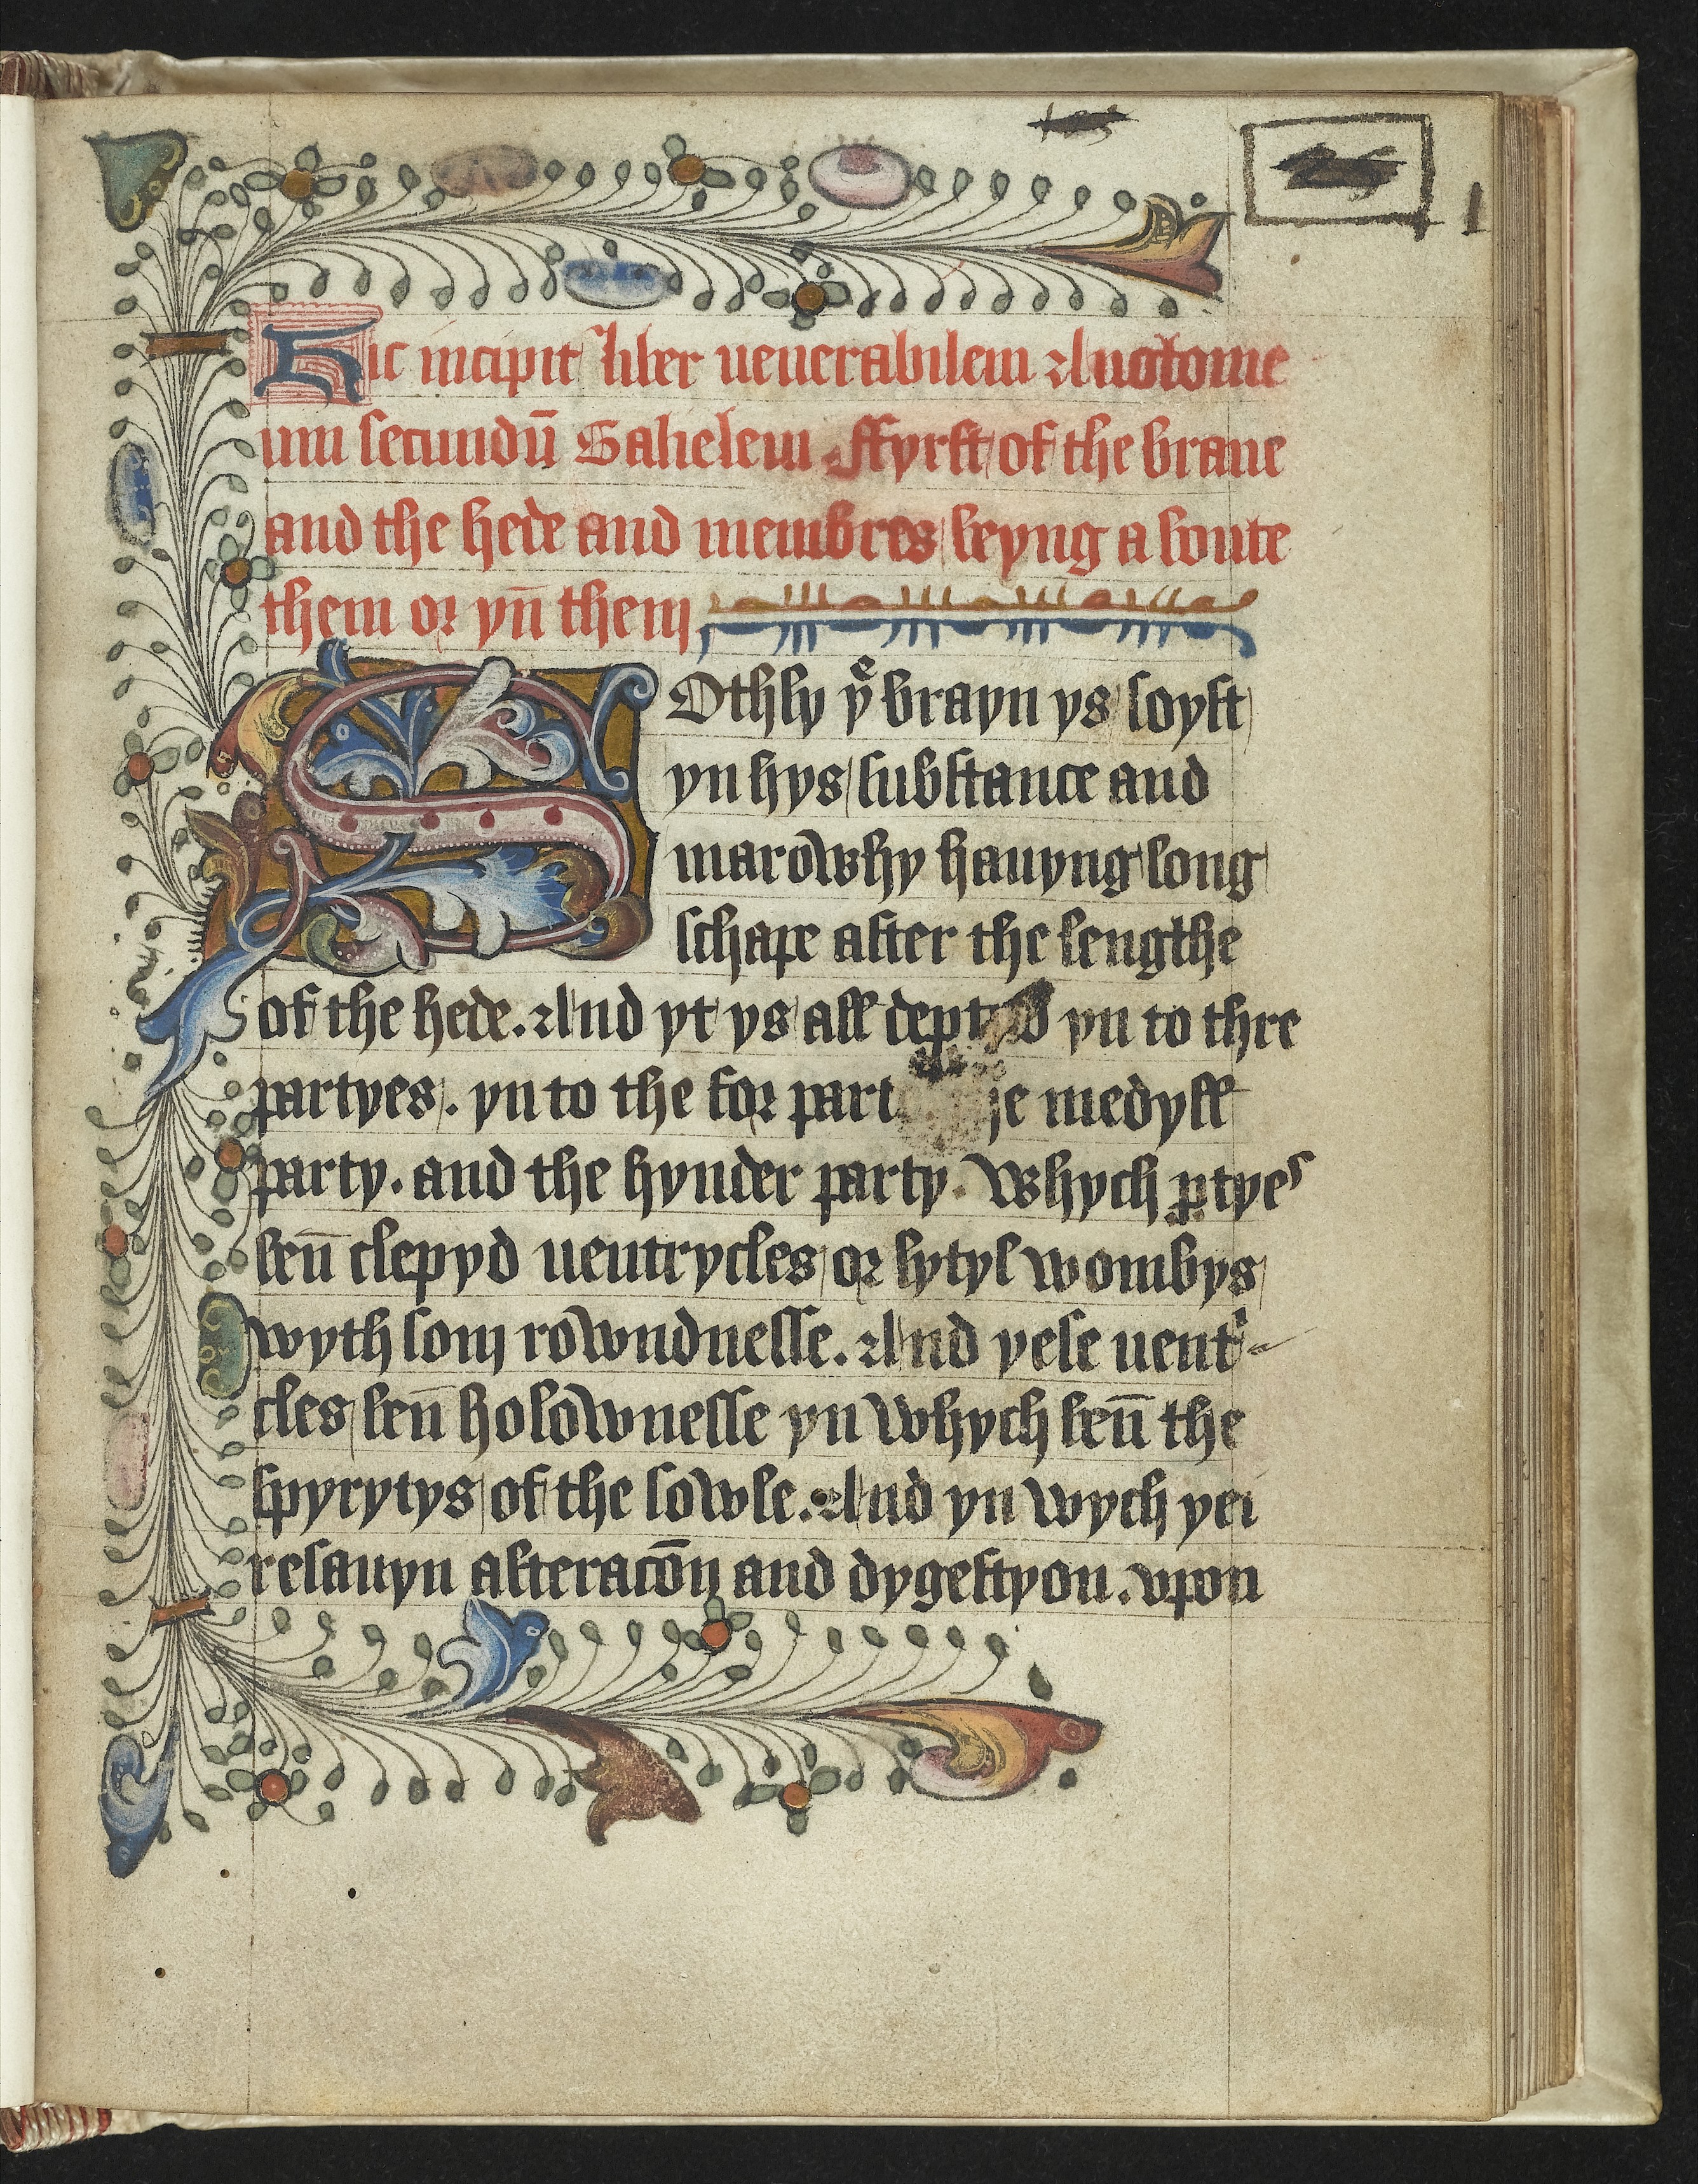 Hic incipit liber uenerabilem Anotome
um secundū Galielem ffyrst of the brane
and the hede and membres beyng a boute
them or yn̄ them
SOthly yͤ brayn ys soyft
yn hys substance and
marowhy hauyng long
schape after the lengthe
of the hede. And yt ys all dep yn to thre
partyes. yn to the for part medyll
party. and the hynder party. Whych ꝑtyes
ben̄ clepyd uentrycles or lytyl wombys
wyth som rowndnesse. And yese uentⁱ-
cles ben̄ holownesse yn Whych ben̄ the
spyrytys of the sowle. And yn wych yei
resauyn alteracōn and dygestyon. vpon
1